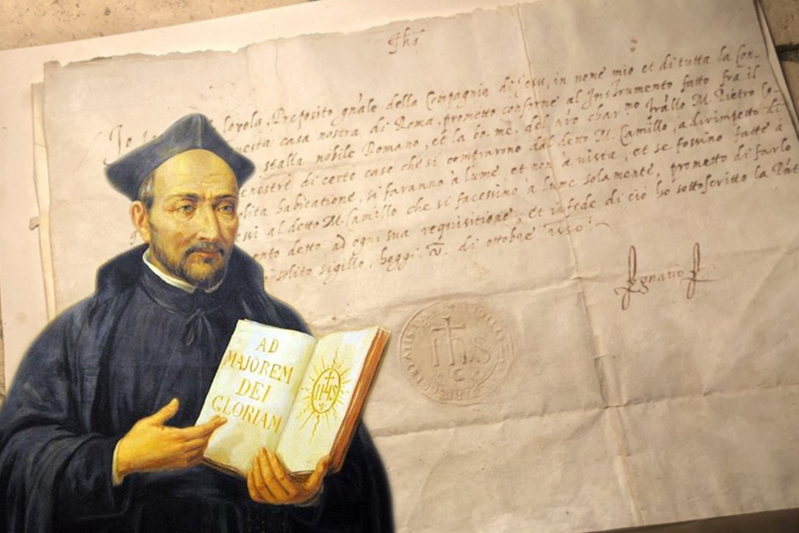 Ihs
Io loyola, Preposito gnãle della Compagnia di Jesu, in nome mio et di tutta la Con
questa casa nostra di Roma, prometto conforme al Instrumento fatto fra il
stalla nobile Romano, et la bo: me: del mio frãllo M. Pietro
di certe case che si comprarono dal detto M. Camillo, a dirimpetto di
habitatione, si faranno à lume et non à vista, et se fossino fatte à
al detto M. Camillo che si facessino à lume solamente, prometto di farlo
detto ad ogni sua requisitione, et in fede di ciò ho sottoscritto la
solito sigillo. hoggi di ottobre 1550.
Ignatio
IHS
AD
MAJOREM
DEI
GLORIAM
IHS